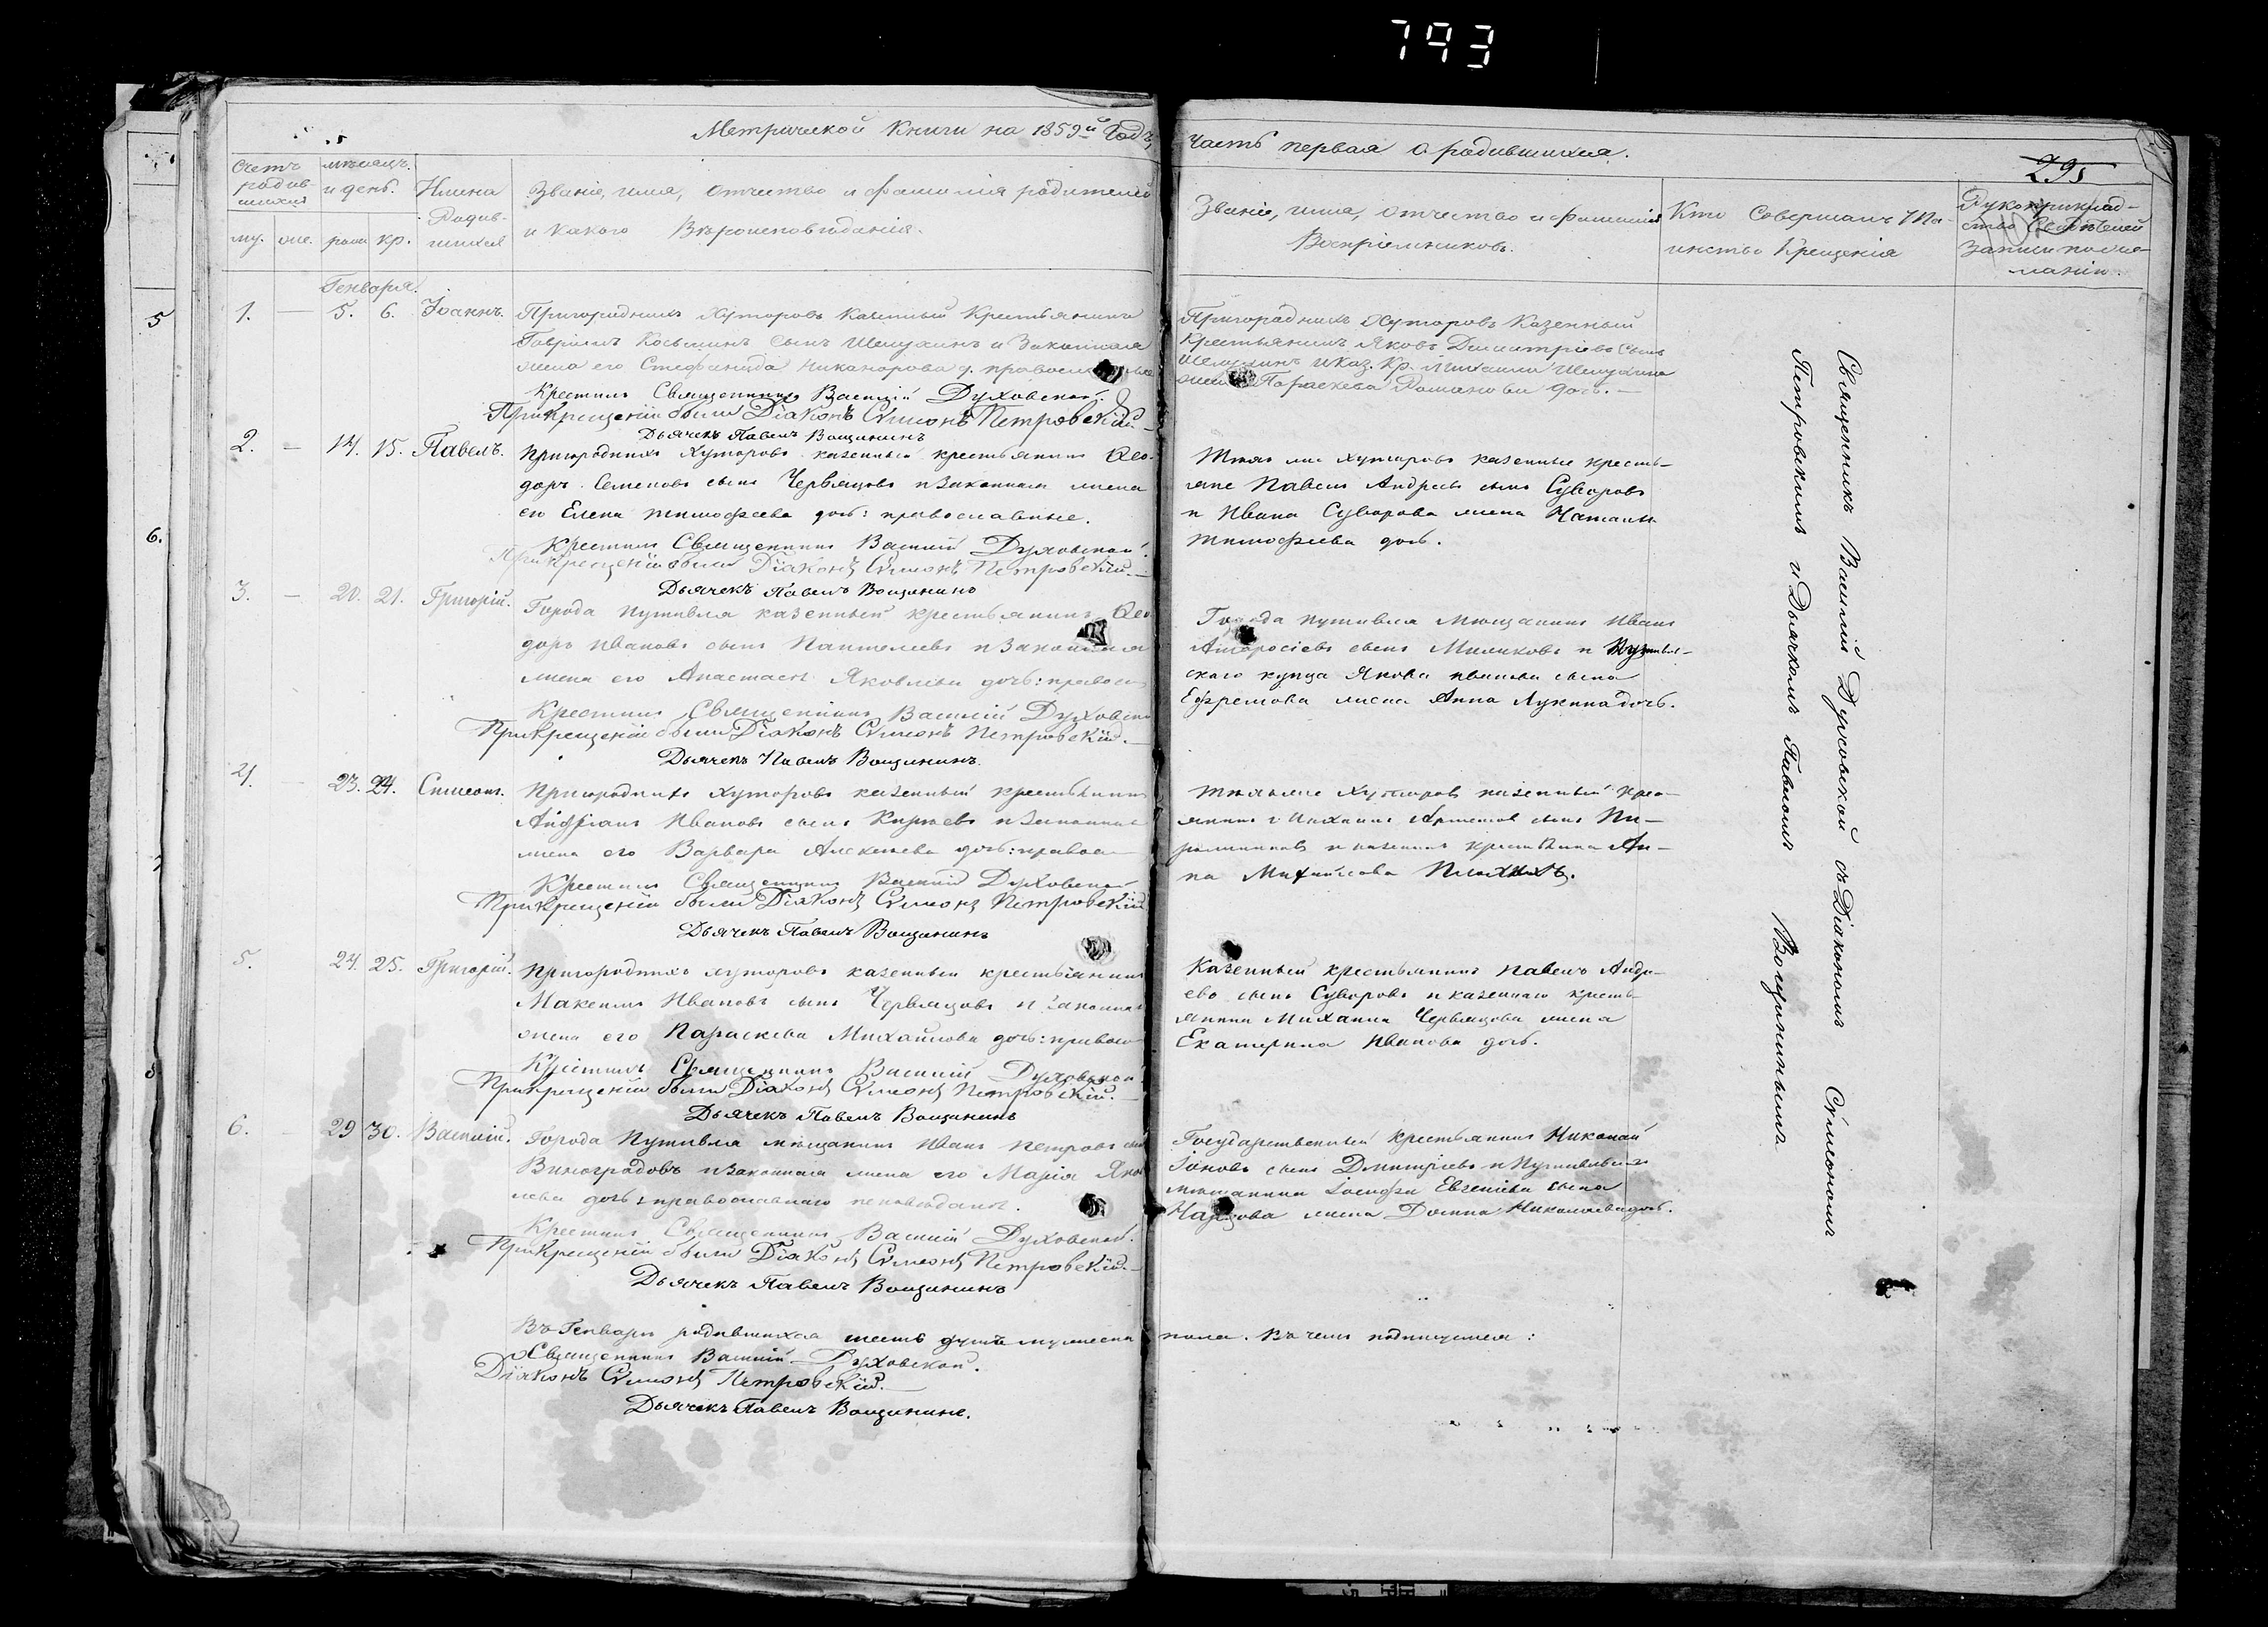 793
Метрической Книги на 1859й Годъ,
Часть первая о родившихся.
295
Счетъ родив-шихся
му. же.
мѣсяцъ и день.
рож. кр.
Имена Родив-шихся
Званіе, имя, отчество и фамилія родителей
и какого Вѣроисповѣданія.
Званіе, имя, отчество и фамилія
Воспріемниковъ.
Кто Совершалъ Та-
инство Крещенія
Рукоприклад-
ство Свидѣтелей
записи по же-
ланію.
Генваря.
1. — 5. 6. Іоаннъ.
Пригородныхъ Хуторовъ Казенный Крестьянинъ
Гавріилъ Косьминъ сынъ Шелухинъ и Законная
жена его Стефанида Никанорова д.
Крестилъ Священникъ Василій Духовской.
При Крещеніи были Діаконъ Сѵмеонъ Петровскій.
Дьячекъ Павелъ Вощининъ
Пригородныхъ Хуторовъ Казенный
Крестьянинъ Яковъ Димитріевъ сынъ
Шелухинъ и Каз. Кр. Михаила Шелухина
жена Параскева Романова доч.
2. — 14. 15. Павелъ.
Пригородныхъ Хуторовъ казенный крестьянинъ Ѳео-
доръ Семеновъ сынъ Червяцовъ и законная жена
его Елена Тимофеева доч: православные.
Крестилъ Священникъ Василій Духовской.
При Крещеніи были Діаконъ Сѵмеонъ Петровскій.
Дьячекъ Павелъ Вощининъ
Тѣхъ же хуторовъ казенные кресть-
яне Павелъ Андреевъ сынъ Суворовъ
и Ивана Суворова жена Наталья
Тимофеева доч.
3. — 20. 21. Григорій.
Города Путивля казенный крестьянинъ Ѳео-
доръ Ивановъ сынъ Пантелеевъ и Законная
жена его Анастасія Яковлева доч:
Крестилъ Священникъ Василій Духовской
При Крещеніи были Діаконъ Сѵмеонъ Петровскій.
Дьячекъ Павелъ Вощининъ.
Города Путивля Мѣщанинъ Иванъ
сынъ Миликовъ и Путивль-
скаго купца Якова Иванова сына
Ефремова жена Анна Лукина доч.
4. — 23. 24. Симеонъ.
Пригородныхъ Хуторовъ казенный крестьянинъ
Андріанъ Ивановъ сынъ и Законная
жена его Варвара Алексѣева доч:
Крестилъ Священникъ Василій Духовской
При Крещеніи были Діаконъ Сѵмеонъ Петровскій
Дьячекъ Павелъ Вощининъ
Тѣхъ же Хуторовъ казенный крес-
янинъ сынъ Пи-
и казенная крестьянка Ан-
на Михайлова
5. 24. 25. Григорій.
Пригородныхъ хуторовъ казенный крестьянинъ
Максимъ Ивановъ сынъ Червяцовъ и Законная
жена его Параскева Михайлова доч:
Крестилъ Священникъ Василій Духовской
При Крещеніи были Діаконъ Сѵмеонъ Петровскій.
Дьячекъ Павелъ Вощининъ
Казенный крестьянинъ Павелъ Андре-
евъ сынъ Суворовъ и казеннаго кресть-
янина Михаила Червяцова жена
Екатерина Иванова доч.
6. — 29 30. Василій.
Города Путивля мѣщанинъ Иванъ Петровъ сынъ
Виноградовъ и Законная жена его Марія Яков-
лева доч: православнаго исповѣданія.
Крестилъ Священникъ Василій Духовской.
При Крещеніи были Діаконъ Сѵмеонъ Петровскій.
Дьячекъ Павелъ Вощининъ
Государственный Крестьянинъ Николай
Іоновъ сынъ Дмитріевъ и Путивльскаго
мѣщанина Іосифа Евгеніева сына
жена Домна Николаева доч.
Священникъ Василій Духовской съ Діакономъ Сѵмеономъ
Петровскимъ и Дьячкомъ Павломъ Вощининымъ
Въ Генварѣ родившихся шесть душъ мужеска пола. Въ чемъ подписуемся:
Священникъ Василій Духовской.
Діаконъ Сѵмеонъ Петровскій.
Дьячекъ Павелъ Вощининъ.
5
6.